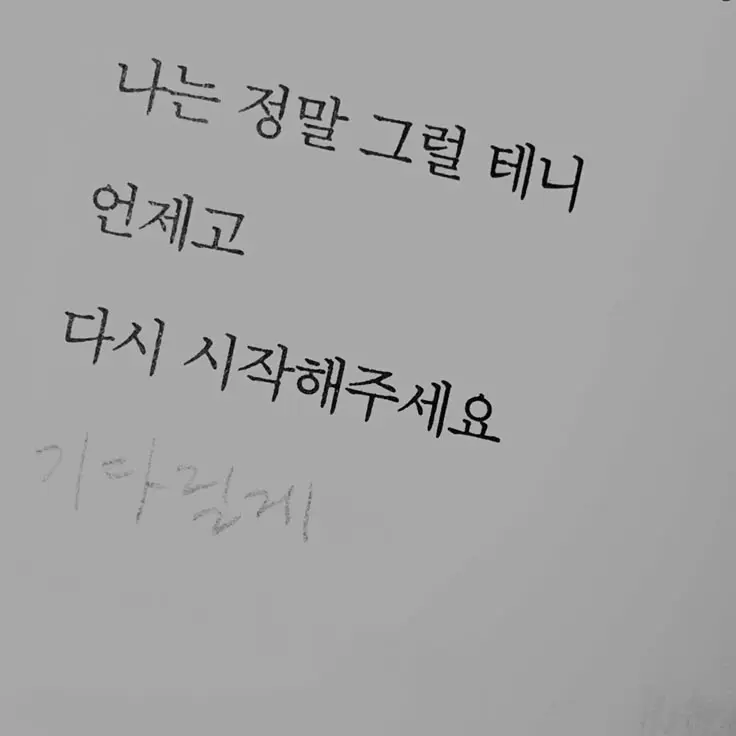 나는 정말 그럴 테니
언제고
다시 시작해주세요
기다릴게